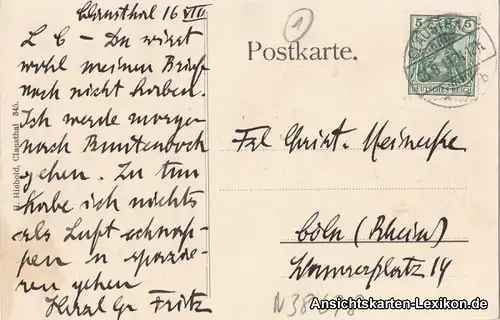 Clausthal 16 VIII
L C - Du wirst
wohl meinen Brief
noch nicht haben.
Ich werde morgen
nach Buntenbock
gehen. Zu tun
habe ich nichts
als Luft schnap-
pen u spazie-
ren gehen
Herzl Gr Fritz
H. Hiebold, Clausthal 345.
1
Postkarte.
5 5
DEUTSCHES REICH
CLAUSTHAL
Frl Christ. Meinecke
Cöln (Rhein)
platz 14
N38
Ansichtskarten-Lexikon.de